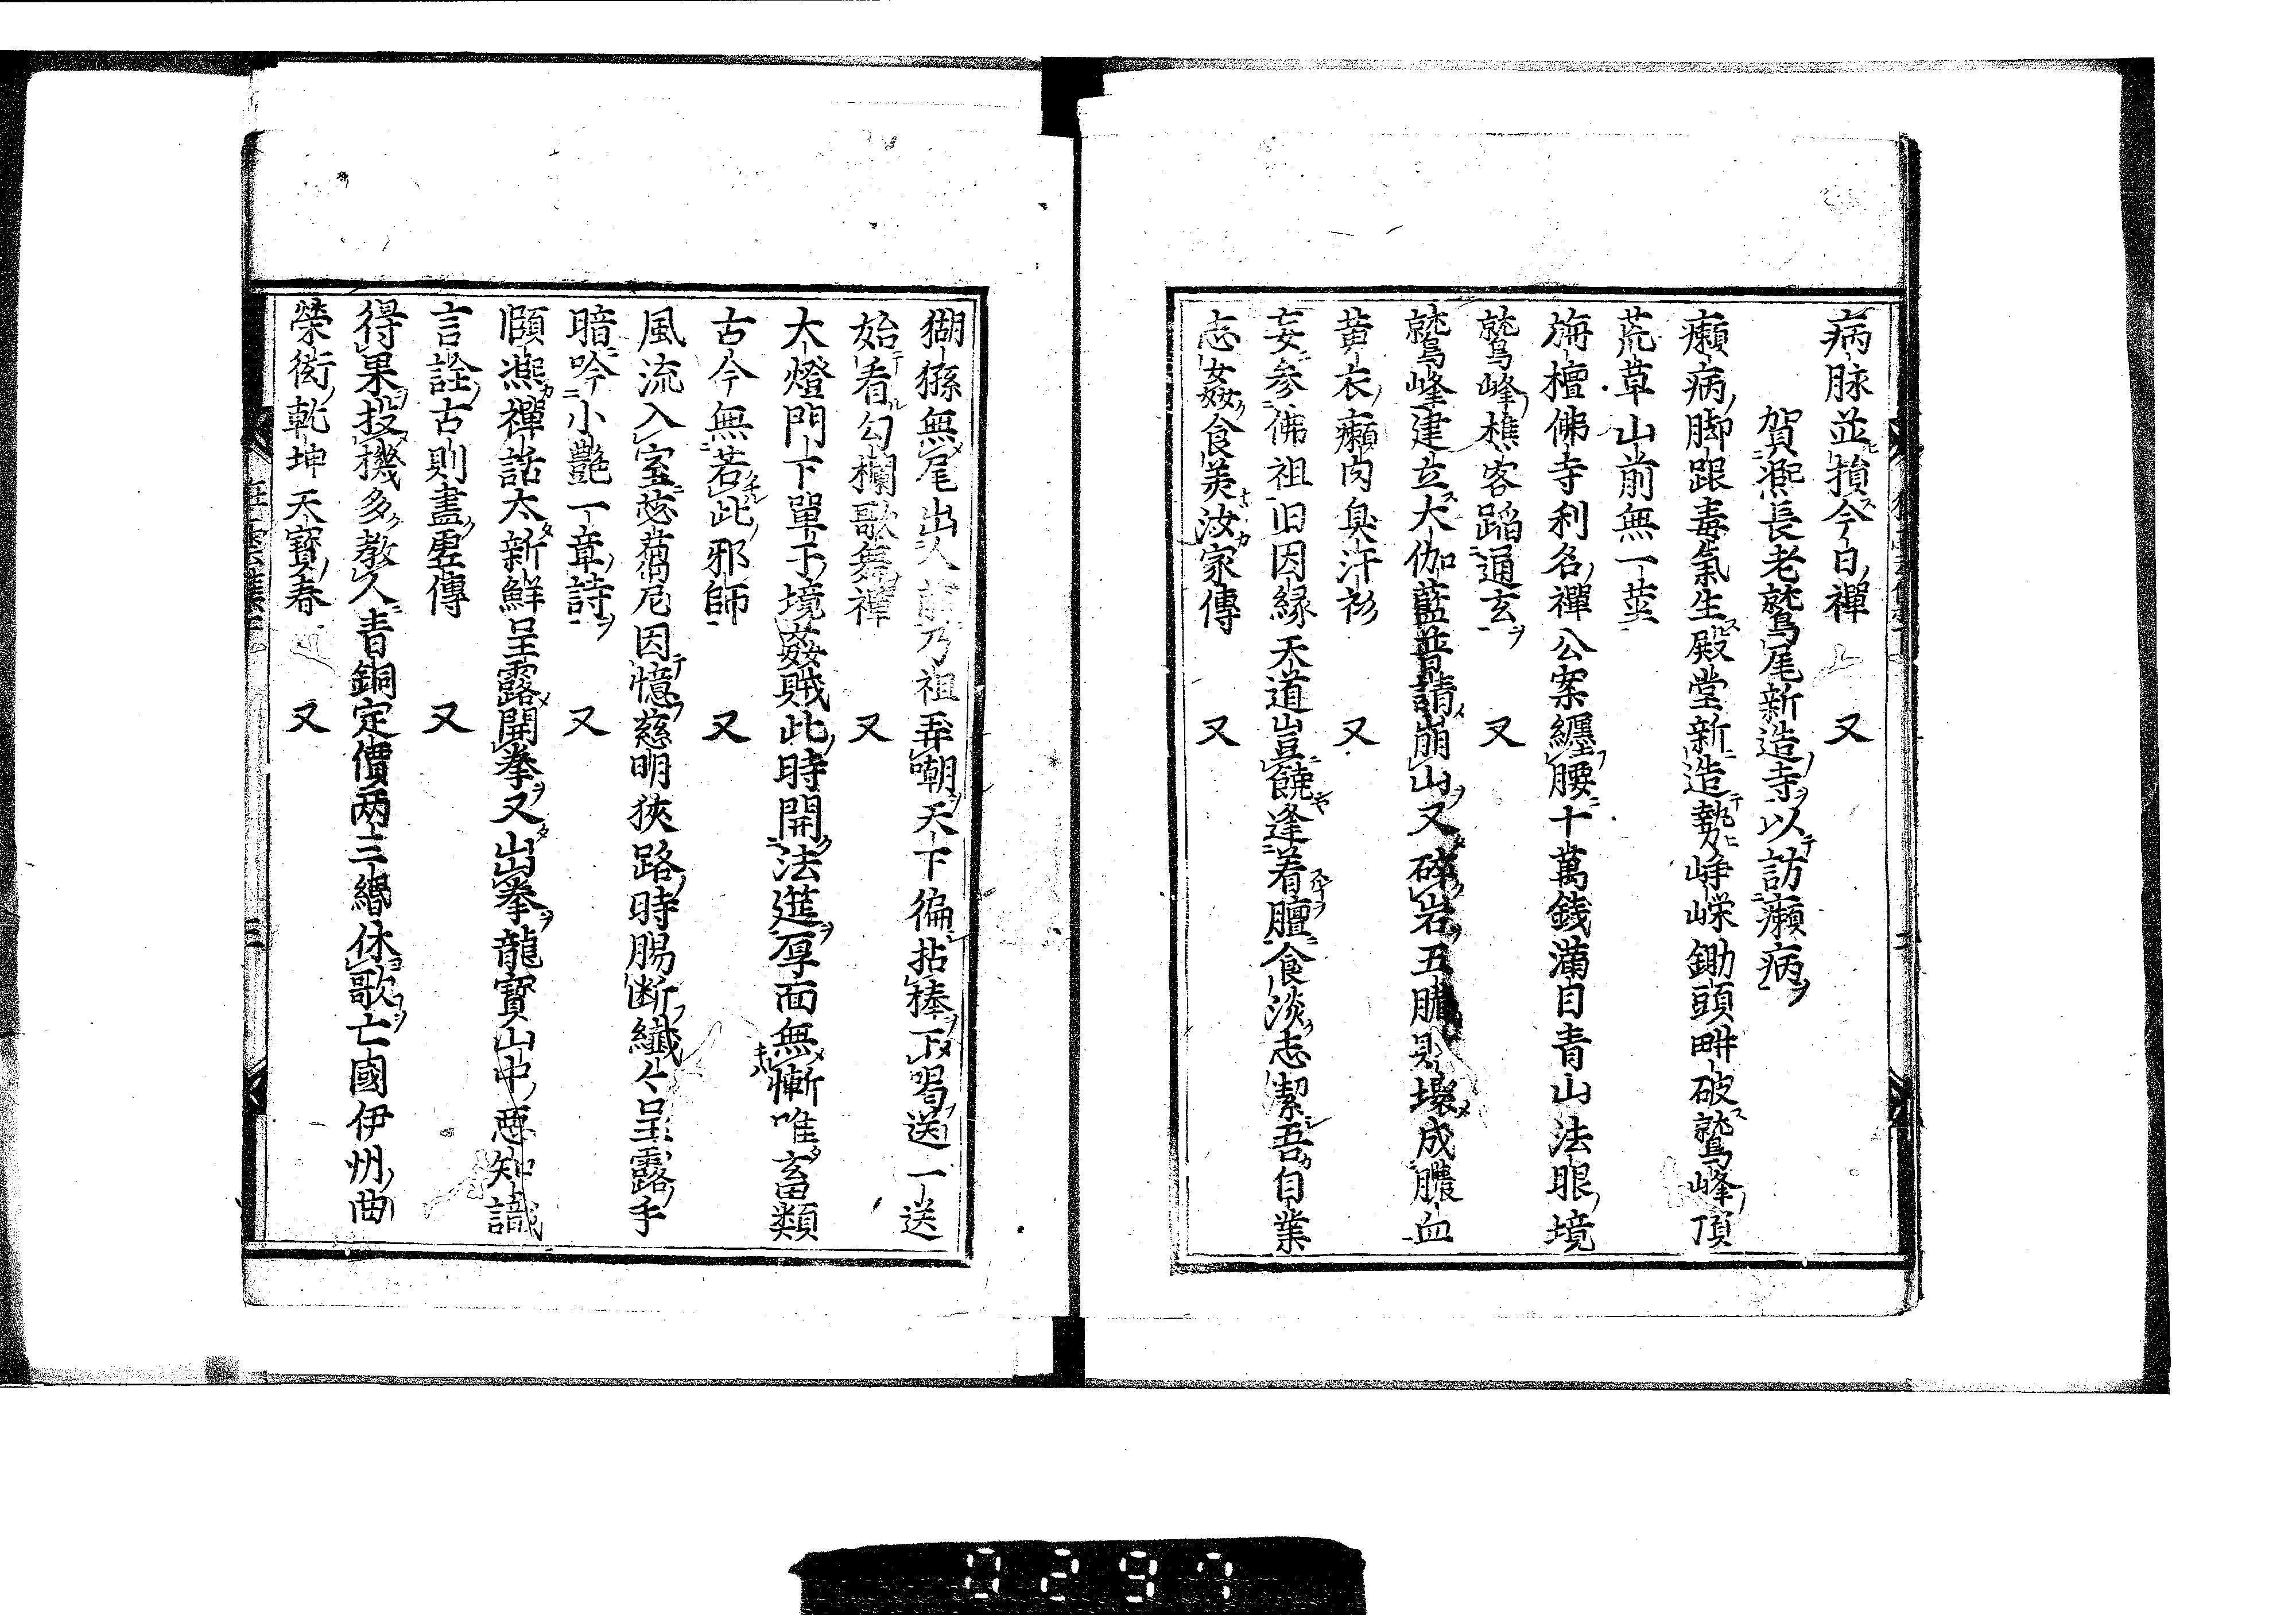 病脉並損今日禪　又
賀熈長老鷲尾新造寺以訪癩病
癩病脚跟毒氣生殿堂新造勢崢嶸鋤頭畊破鷲峰頂
荒草山前無一莖
栴檀佛寺利名禪公案纒腰十萬錢滿目青山法眼境
鷲峰樵客蹈通玄　又
鷲峰建立大伽藍普請崩山又碎岩五臓敗壞成膿血
黄衣癩肉臭汗衫　又
妄参佛祖旧因縁天道豈饒逢着膻食淡志潔吾自業
志姦食美汝家傳　又
猢猻無尾出人前乃祖弄嘲天下徧拈棒下喝送一送
始看勾欄歌舞禪　又
大燈門下單于境姦賊此時開法筵厚面無慚唯畜類
古今無若此邪師　又
風流入室苾蒭尼因憶慈明狹路時腸断纎々呈露手
暗吟小艶一章詩　又
頤凞禪話太新鮮呈露開拳又出拳龍寳山中惡知識
言詮古則盡虚傳　又
得果投機多教人青銅定價两三緡休歌亡國伊州曲
榮衒乾坤天寳春　又
0297